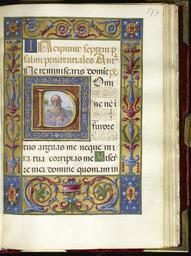 Incipiunt septem p
salmi penitentiales Añ.
Ne reminiscaris domie
Domi
ne ne i
furore
tuo arguas me neque in i
ra tua corripias me Misere
re mei domine quoniam in